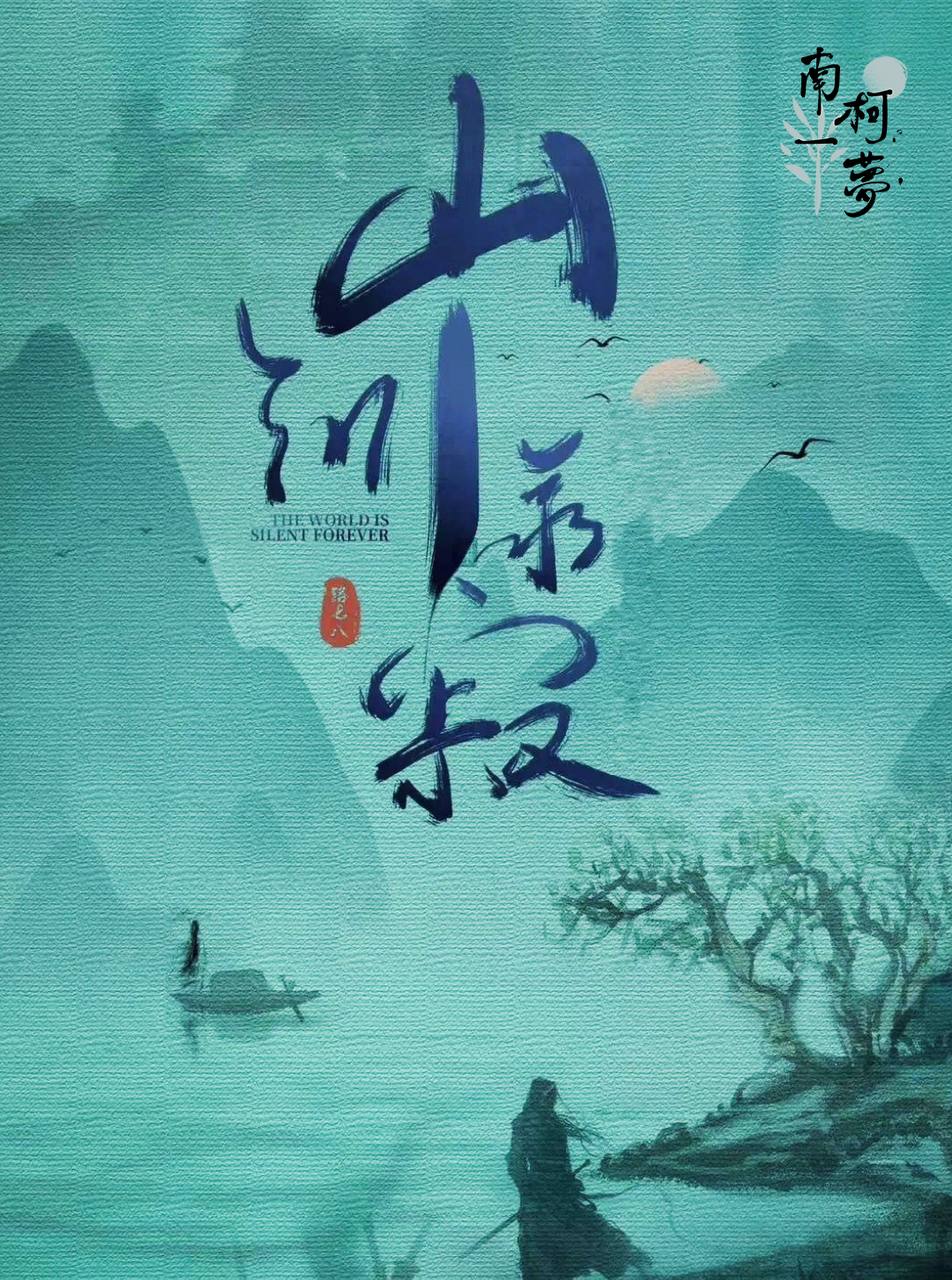 南柯一夢
山河永寂
THE WORLD IS
SILENT FOREVER
路七八